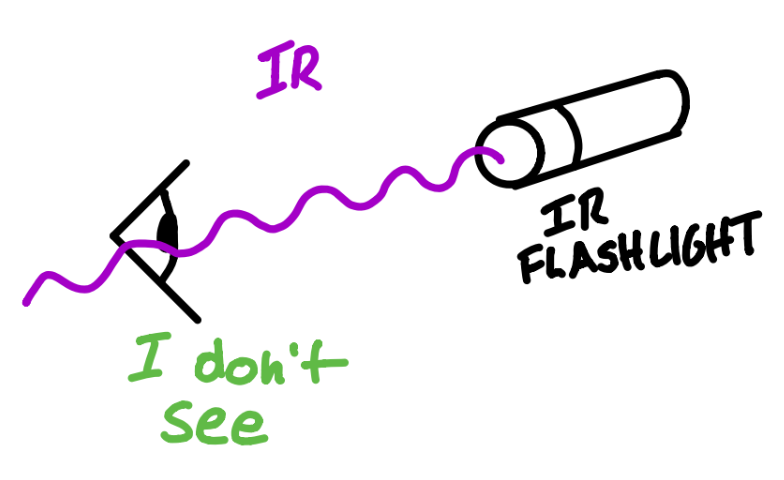 IR
IR
FLASHLIGHT
I don't
see